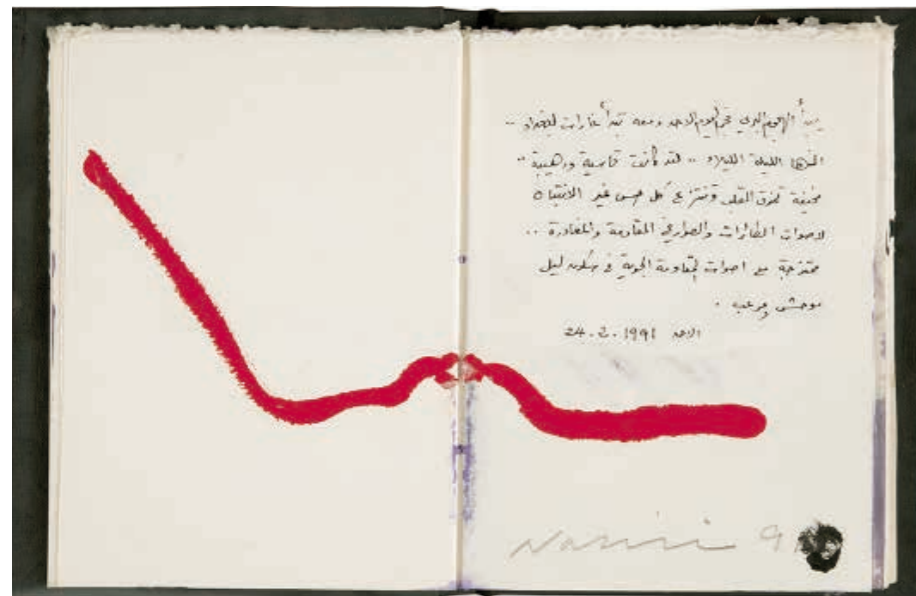 يبدأ الهجوم البري فجر اليوم الاحد ومعه تبدأ غارات لبغداد ..
الليلة الليلاء .. لقد كانت قاسية ورهيبة ..
مخيفة تمزق القلب وتنتزع كل حس غير الانتباه
لاصوات الطائرات والصواريخ القادمة والمغادرة ..
ممتزجة مع اصوات المقاومة الجوية في سكون ليل
موحش ومرعب .
الاحد 24.2.1991
Nasiri 91